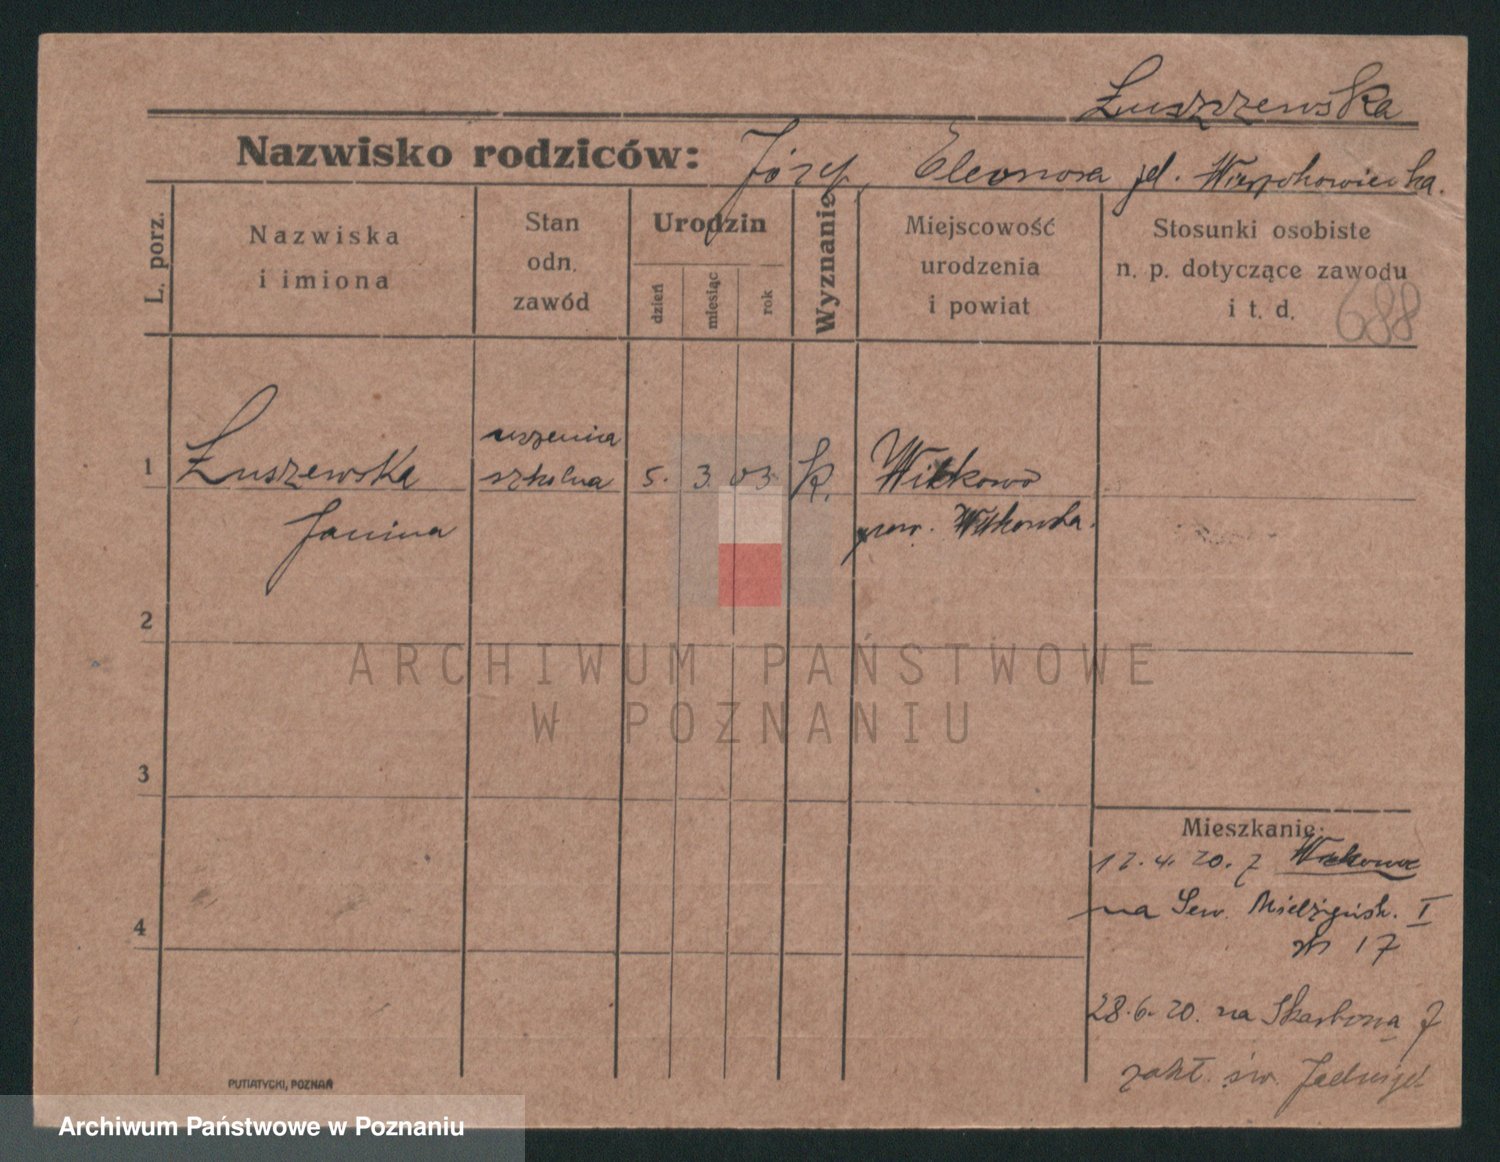 Łuszczewska
Nazwisko rodziców: Józef, Eleonora
L. porz.
Nazwiska
i imiona
Stan
odn.
zawód
Urodzin
dzień
miesiąc
rok
Wyznanie
Miejscowość
urodzenia
i powiat
Stosunki osobiste
n. p. dotyczące zawodu
i t. d.
688
1 Łuszewska
Janina
uczenica
szkolna
5. 3 03
k.
Witkowo
pow. Witkowska.
2
3
4
Mieszkanie:
17.4.20. z Witkowa
na Sew. Mielżyńsk. I
nr 17
28.6.20. na Skarbona 7
zakł. św. Jadwigi
PUTIATYCKI, POZNAŃ
ARCHIWUM PAŃSTWOWE
W POZNANIU
Archiwum Państwowe w Poznaniu